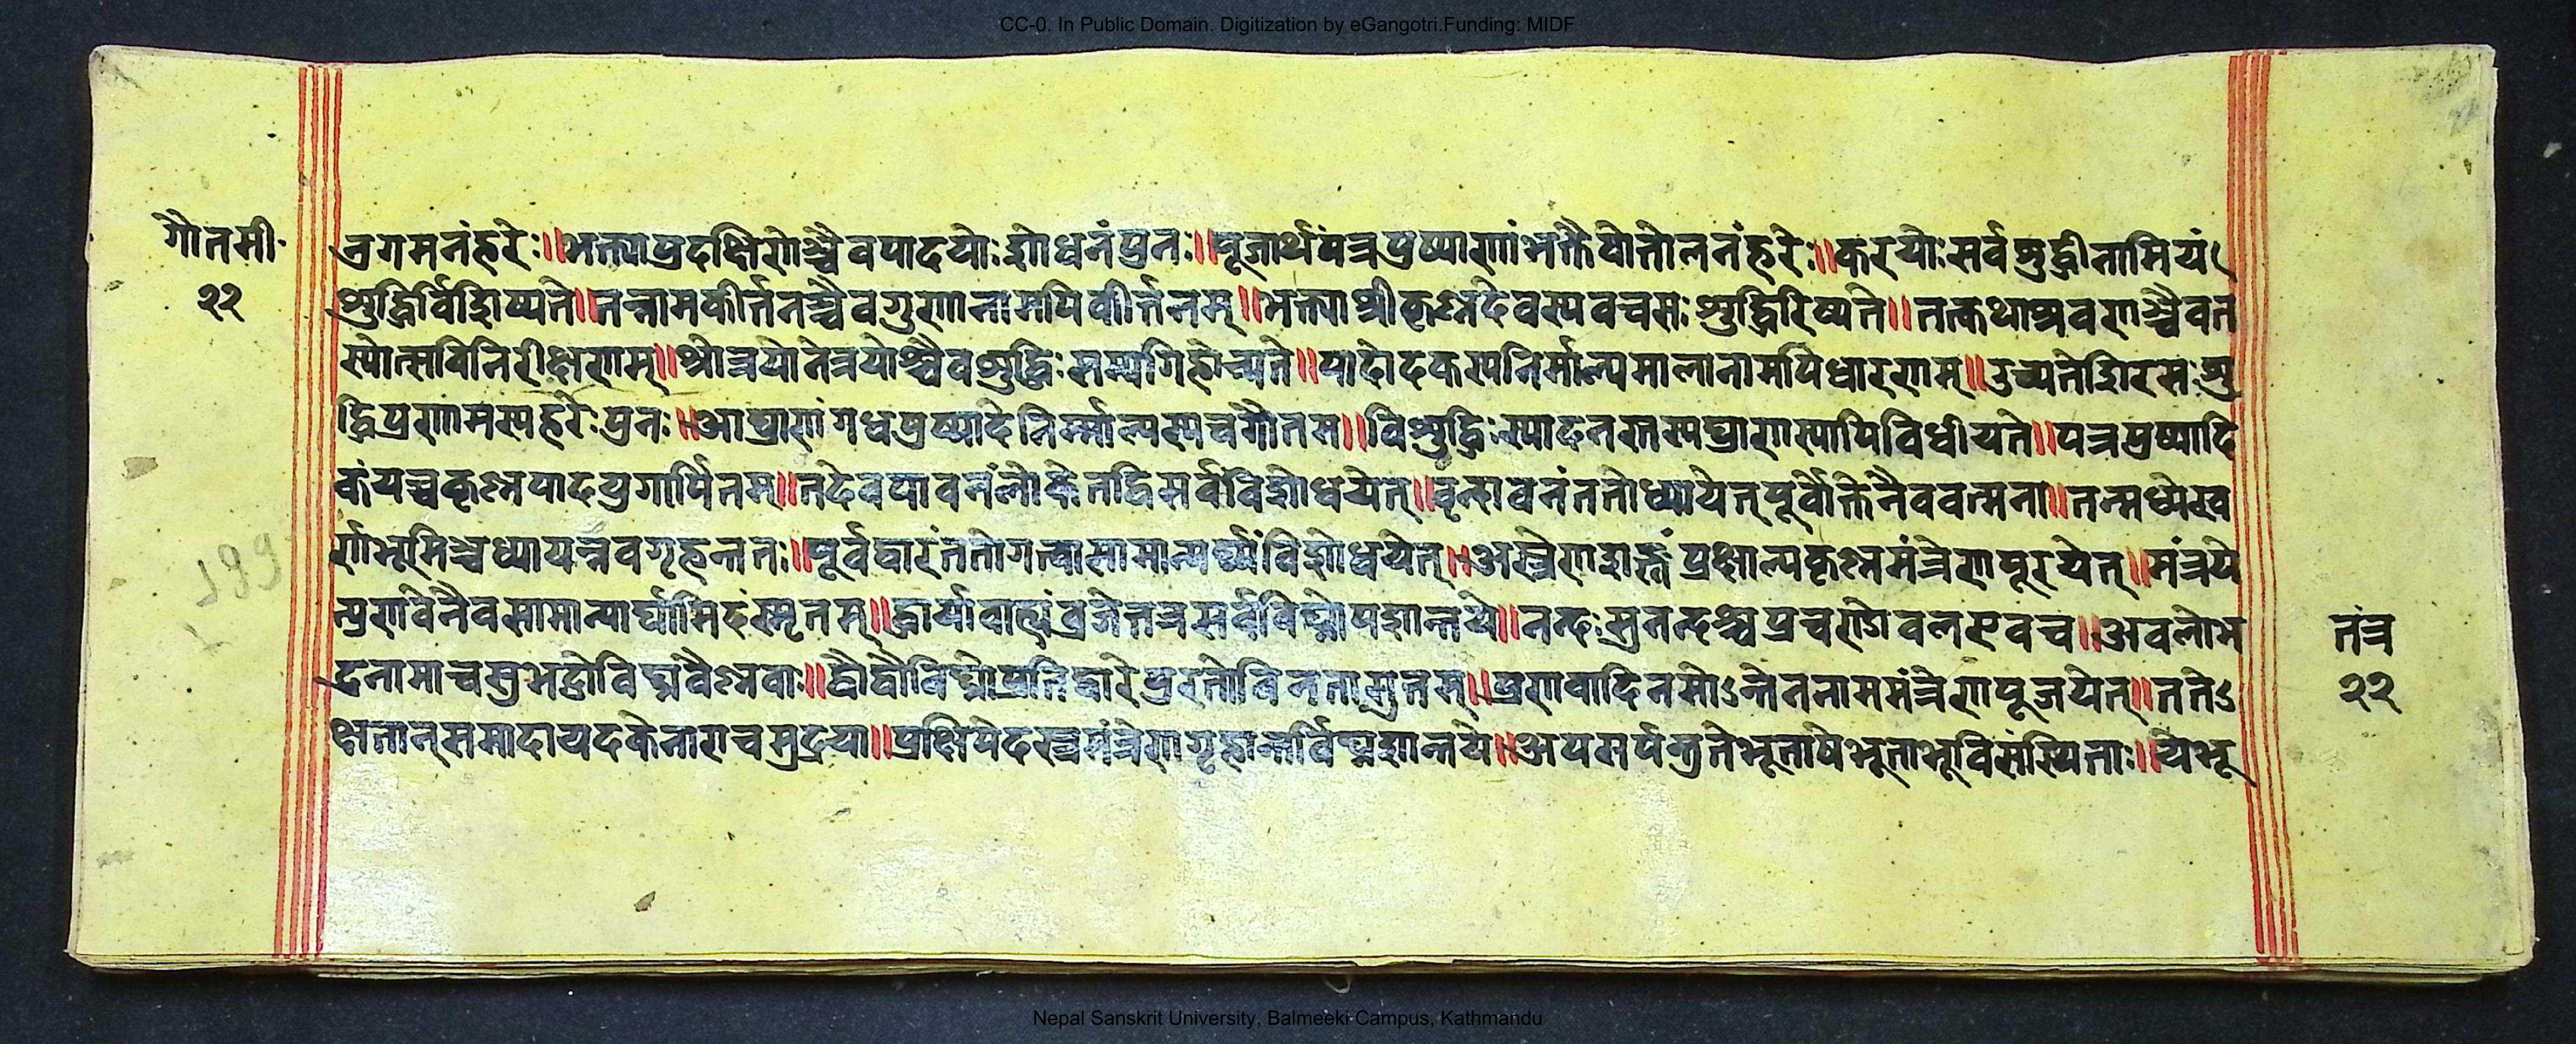 CC-0. In Public Domain. Digitization by eGangotri.Funding: MIDF
गौतमी॰
२२
व्रगमनंहरेः॥भक्त्याप्रदक्षिणाश्चैवपादयोःशोधनंपुनः॥पूजार्थंपत्रपुष्पाणांभक्तैवोत्तोलनंहरेः॥करयोःसर्वशुद्धीनामियं
शुद्धिर्विशिष्यते॥तन्नामकीर्त्तनञ्चैवगुणानामपिकीर्त्तनम्॥भक्त्याश्रीकृष्णदेवस्यवचसःशुद्धिरिष्यते॥तत्कथाश्रवणश्चैवत
स्योत्सवनिरीक्षणम्॥श्रोत्रयोनेत्रयोश्चैवशुद्धिःसम्यगिहोच्यते॥पादोदकस्यनिर्माल्यमालानामपिधारणम्॥उच्यतेशिरसःशु
द्धिप्रणामस्यहरेःपुनः॥आघ्राणंगंधपुष्पादेनिर्म्माल्यस्यचगौतम॥विशुद्धिःस्यादनतस्यघ्राणस्यापिविधीयते॥पत्रपुष्पादि
कंयच्चकृष्णपादयुगार्पितम्॥तदेवपावनंलोकेतद्धिसर्वंविशोधयेत्॥वृन्दावनंततोध्यायेत्पूर्वोक्तेनैववत्मना॥तन्मध्येस्व
र्णभूमिञ्चध्यायन्नवगृहन्ततः॥पूर्वद्वारंततोगत्वासामान्यर्घ्यंविशोधयेत्॥अस्त्रेणशङ्खंप्रक्षाल्यकृष्णमंत्रेणपूरयेत्॥मंत्रये
त्प्रणवेनैवसामान्यार्घ्यमिदंस्मृतम्॥द्वार्यावाह्यंव्रजेत्तत्रसर्वविघ्नोपशान्तये॥नन्दःसुनन्दश्चप्रचण्डोवलएवच॥अवलोभ
द्रनामाचसुभद्रोविघ्नवैष्णवाः॥द्वौद्वौविघ्नोप्रतिद्वारेपुरतोविनतासुतम्॥प्रणवादिनमोऽन्तेननाममंत्रेणपूजयेत्॥ततोऽ
क्षतान्समादायदकेनाराचमुद्रया॥प्रक्षिपेदस्त्रमंत्रेणगृहान्तर्विघ्नशान्तये॥अपसर्पन्तुतेभूतायेभूताभूविसंस्थिताः॥येभू
तंत्र
२२
Nepal Sanskrit University, Balmeeki Campus, Kathmandu